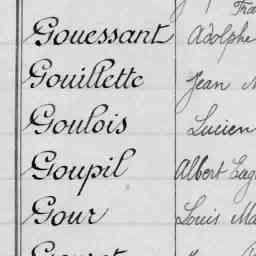 Gouessant Adolphe
Gouillette Jean
Goulois Lucien
Goupil Albert
Gour Louis